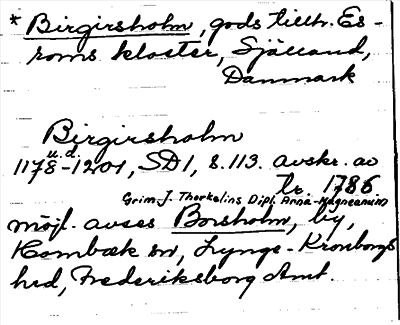 * Birgirsholm, gods tillh. Es-
roms kloster, Själland,
Danmark
Birgirsholm
u.d.
1178-1201, SD1, s. 113. avskr. av
tr. 1786
Grim J. Thorkelins Dipl. Arna-Magnæanum
möjl. avses Borsholm, by,
Hornbæk sn, Lynge-Kronborgs
hrd, Frederiksborg Amt.